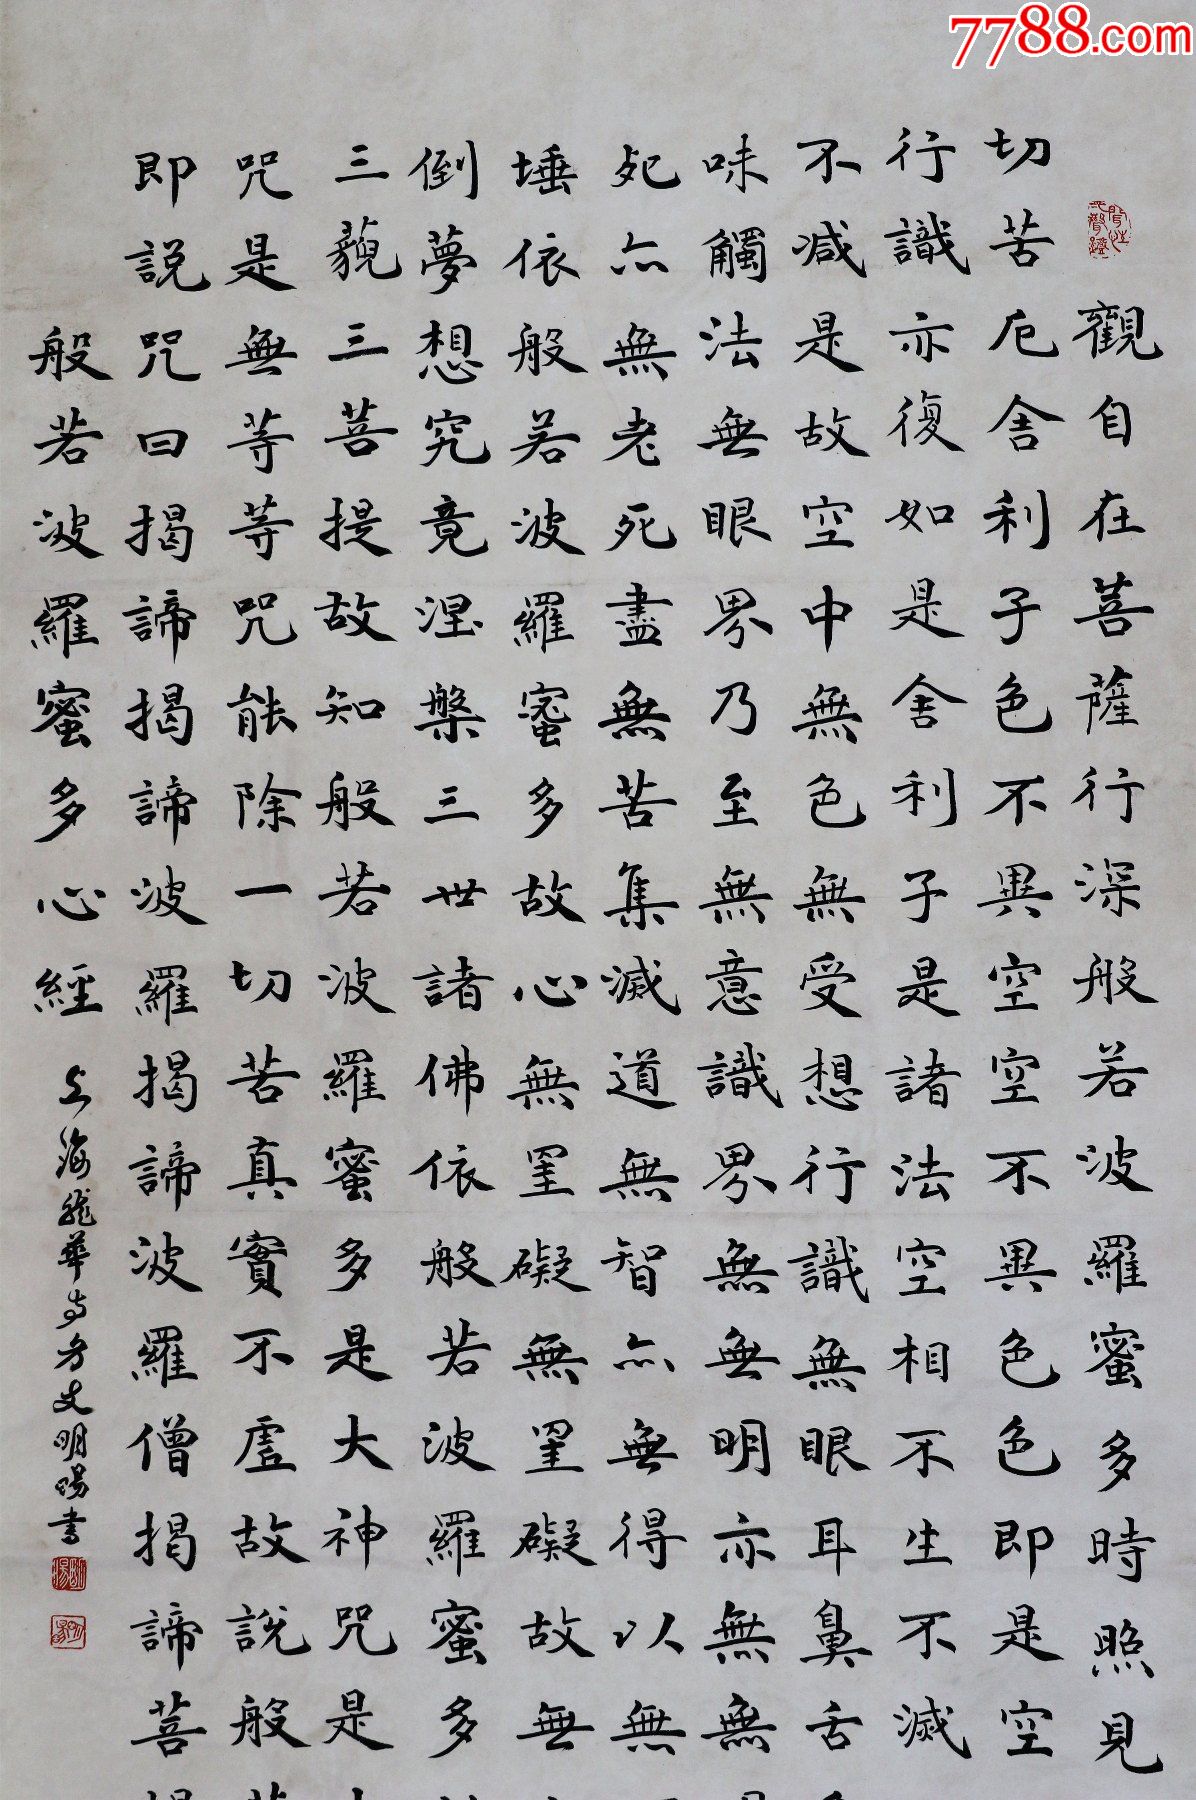 7788.com
觀自在菩薩行深般若波羅蜜多時照見
切苦厄舍利子色不異空空不異色色即是空
行識亦復如是舍利子是諸法空相不生不滅
不减是故空中無色無受想行識無眼耳鼻舌
味觸法無眼界乃至無意識界無無明亦無無
死亦無老死盡無苦集滅道無智亦無得以無
埵依般若波羅蜜多故心無罣礙無罣礙故無
倒夢想究竟涅槃三世諸佛依般若波羅蜜多
三藐三菩提故知般若波羅蜜多是大神咒是
咒是無等等咒能除一切苦真實不虛故說般
即説咒曰揭諦揭諦波羅揭諦波羅僧揭諦菩
般若波羅蜜多心經
上海龍華寺方丈明暘書